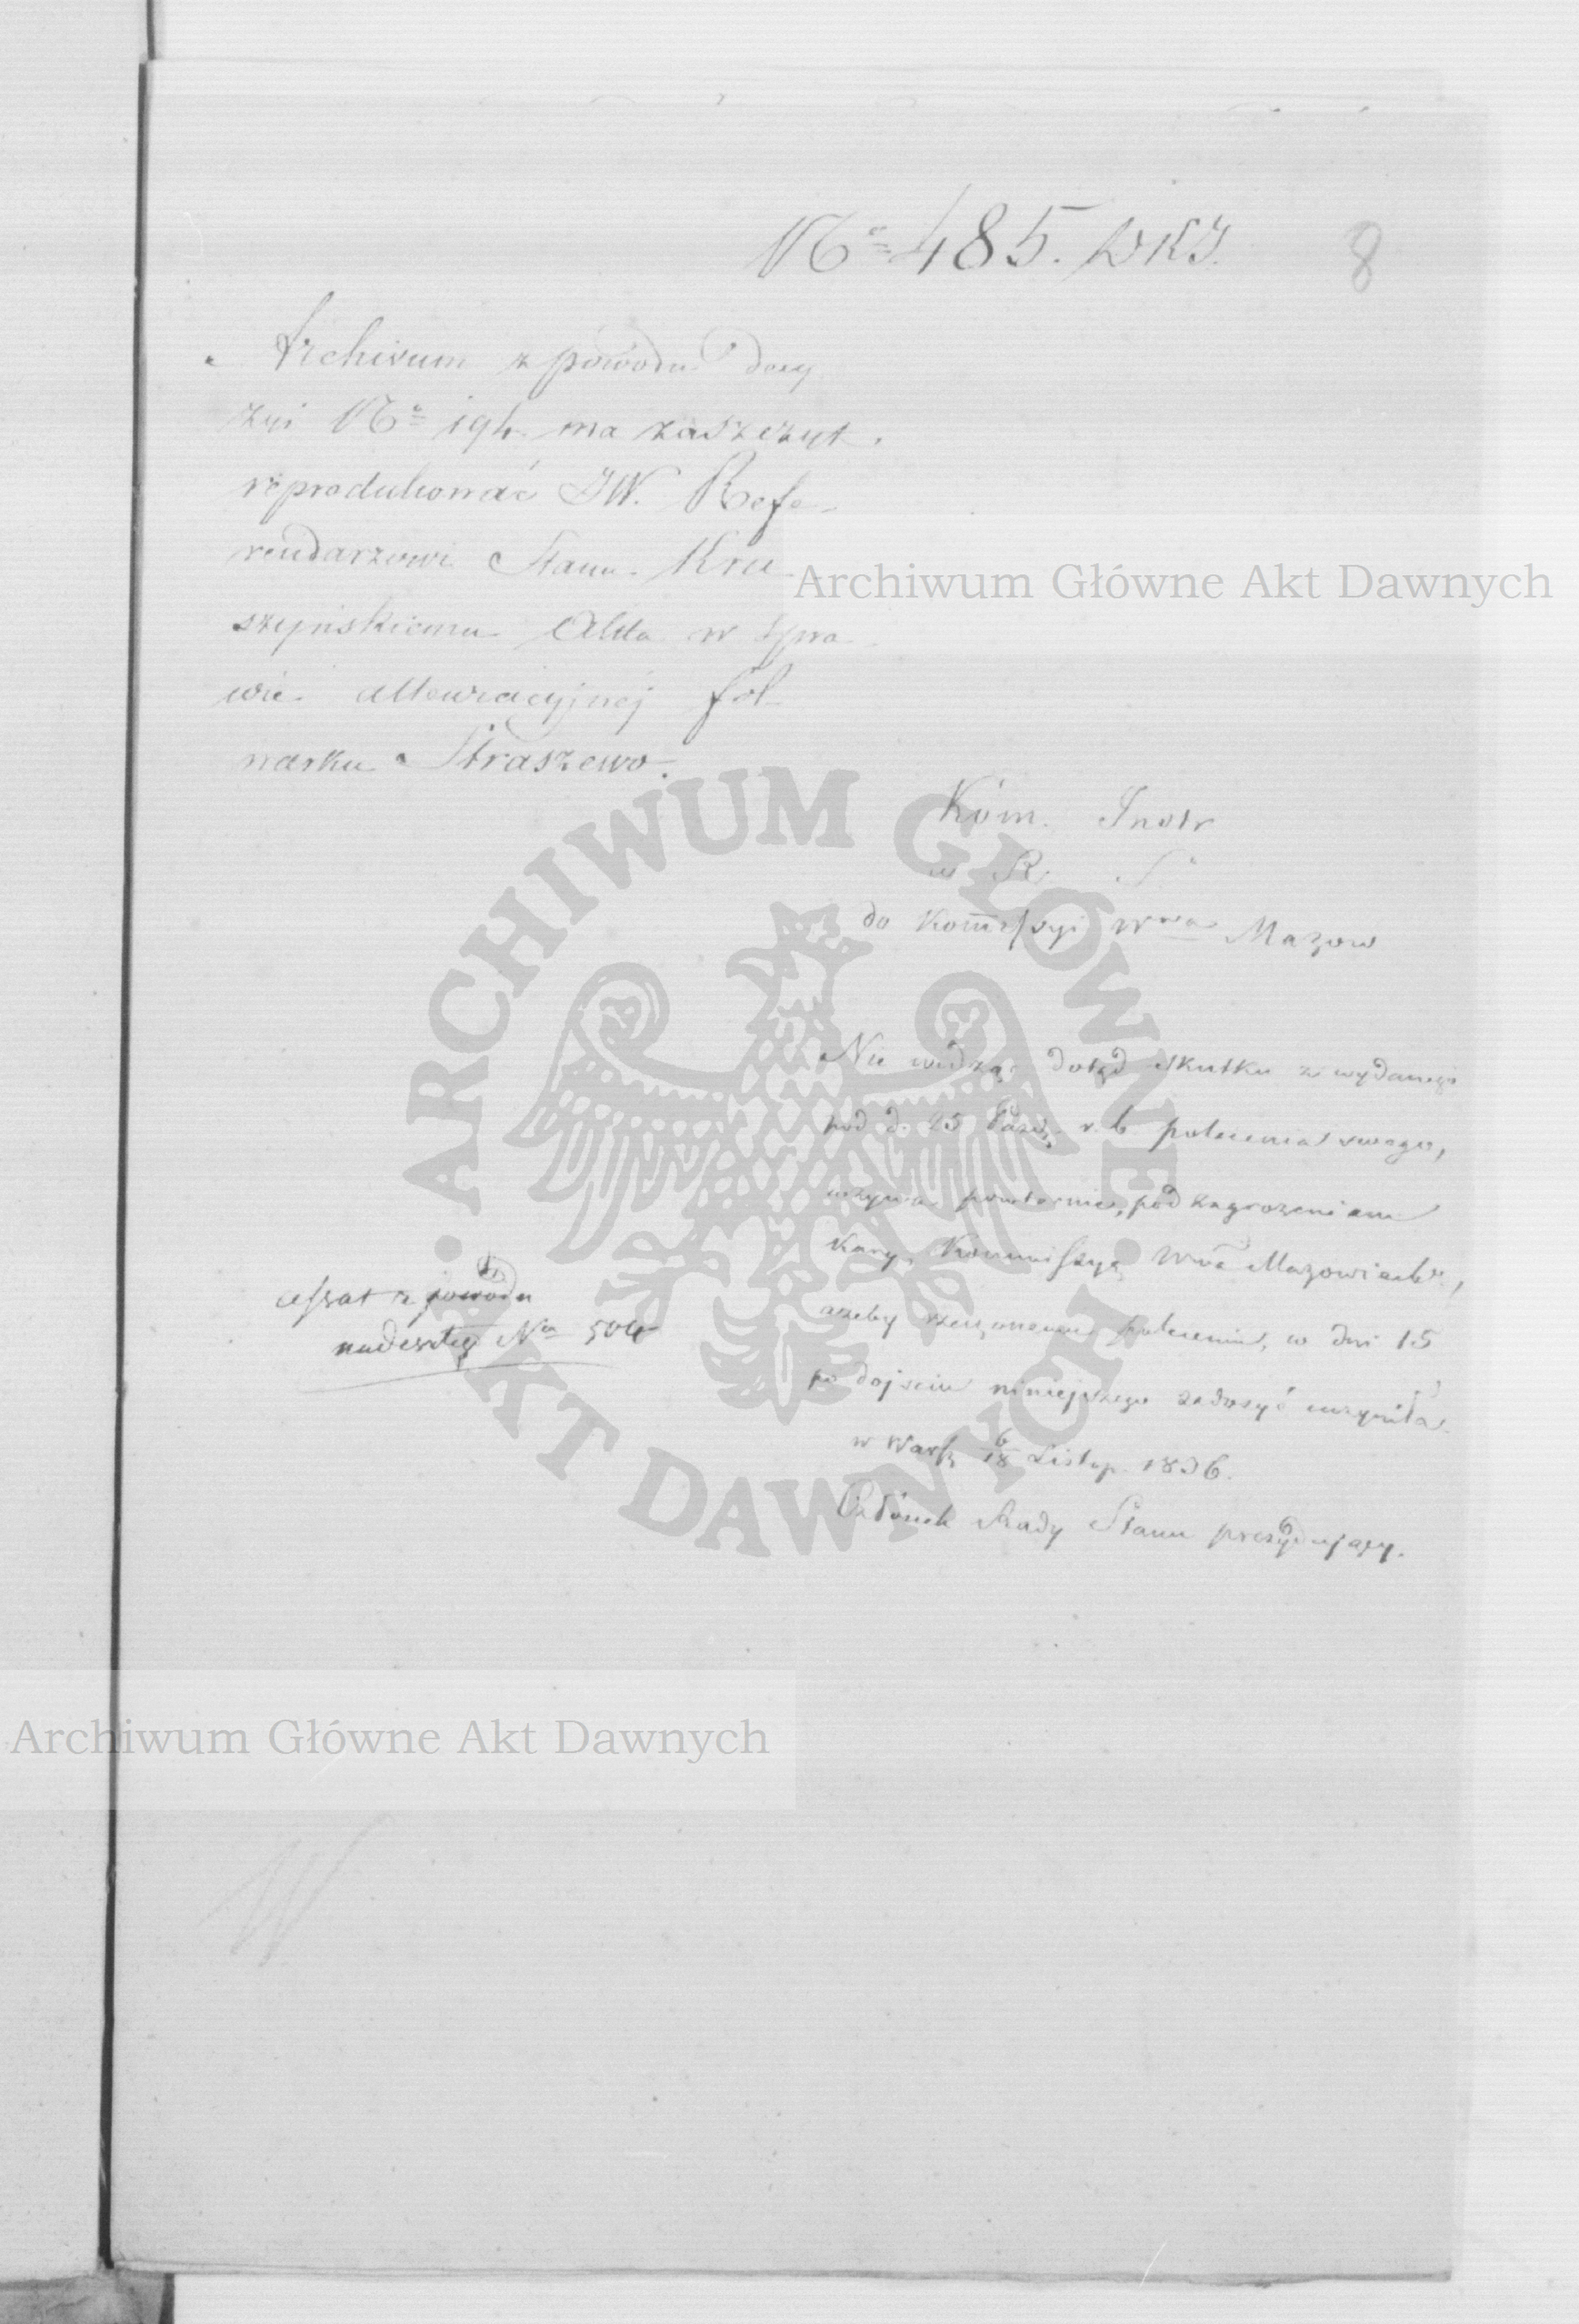 No 485. DKJ.
8
Archivum z powodu decy
zyi No 194 ma zaszczyt
reprodukować JW. Refe-
rendarzowi Stanu Kru
szyńskiemu Akta w spra
wie attowiacyjnéj fol
warku Straszewo.
Archiwum Główne Akt Dawnych
Kom. Instr
w R. S.
do Kommissyi Wwa Mazow
Nie widząc dotąd skutku z wydanego
pod d. 25 Paźdz. r. b. polecenia swego,
wzywa powtornie, pod zagrożeniem
kary, Kommissyą Wwa Mazowieck.,
ażeby rzeczonemu poleceniu, w dni 15
po dojściu niniejszego zadosyć uczyniła.
w Warsz 6/18 Listop. 1836.
Członek Rady Stanu prezydujący.
cessat z powodu
nadeszłej No 504
ARCHIWUM GŁÓWNE AKT DAWNYCH
Archiwum Główne Akt Dawnych